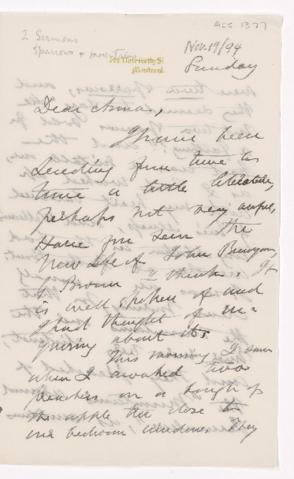 ACC 1377
2 Sermons
Sparrows &
Nov. 19/94
Sunday
Dear Anna,
I have been
sending from time to
time a little literature,
perhaps not very awful,
Have you seen the
New Life of John Bunyan,
by Brown I think. It
is well spoken of and
I had thought of
about it.
This morning
when I awaked two
on a bough of
the apple tree close to
our bedroom window. They